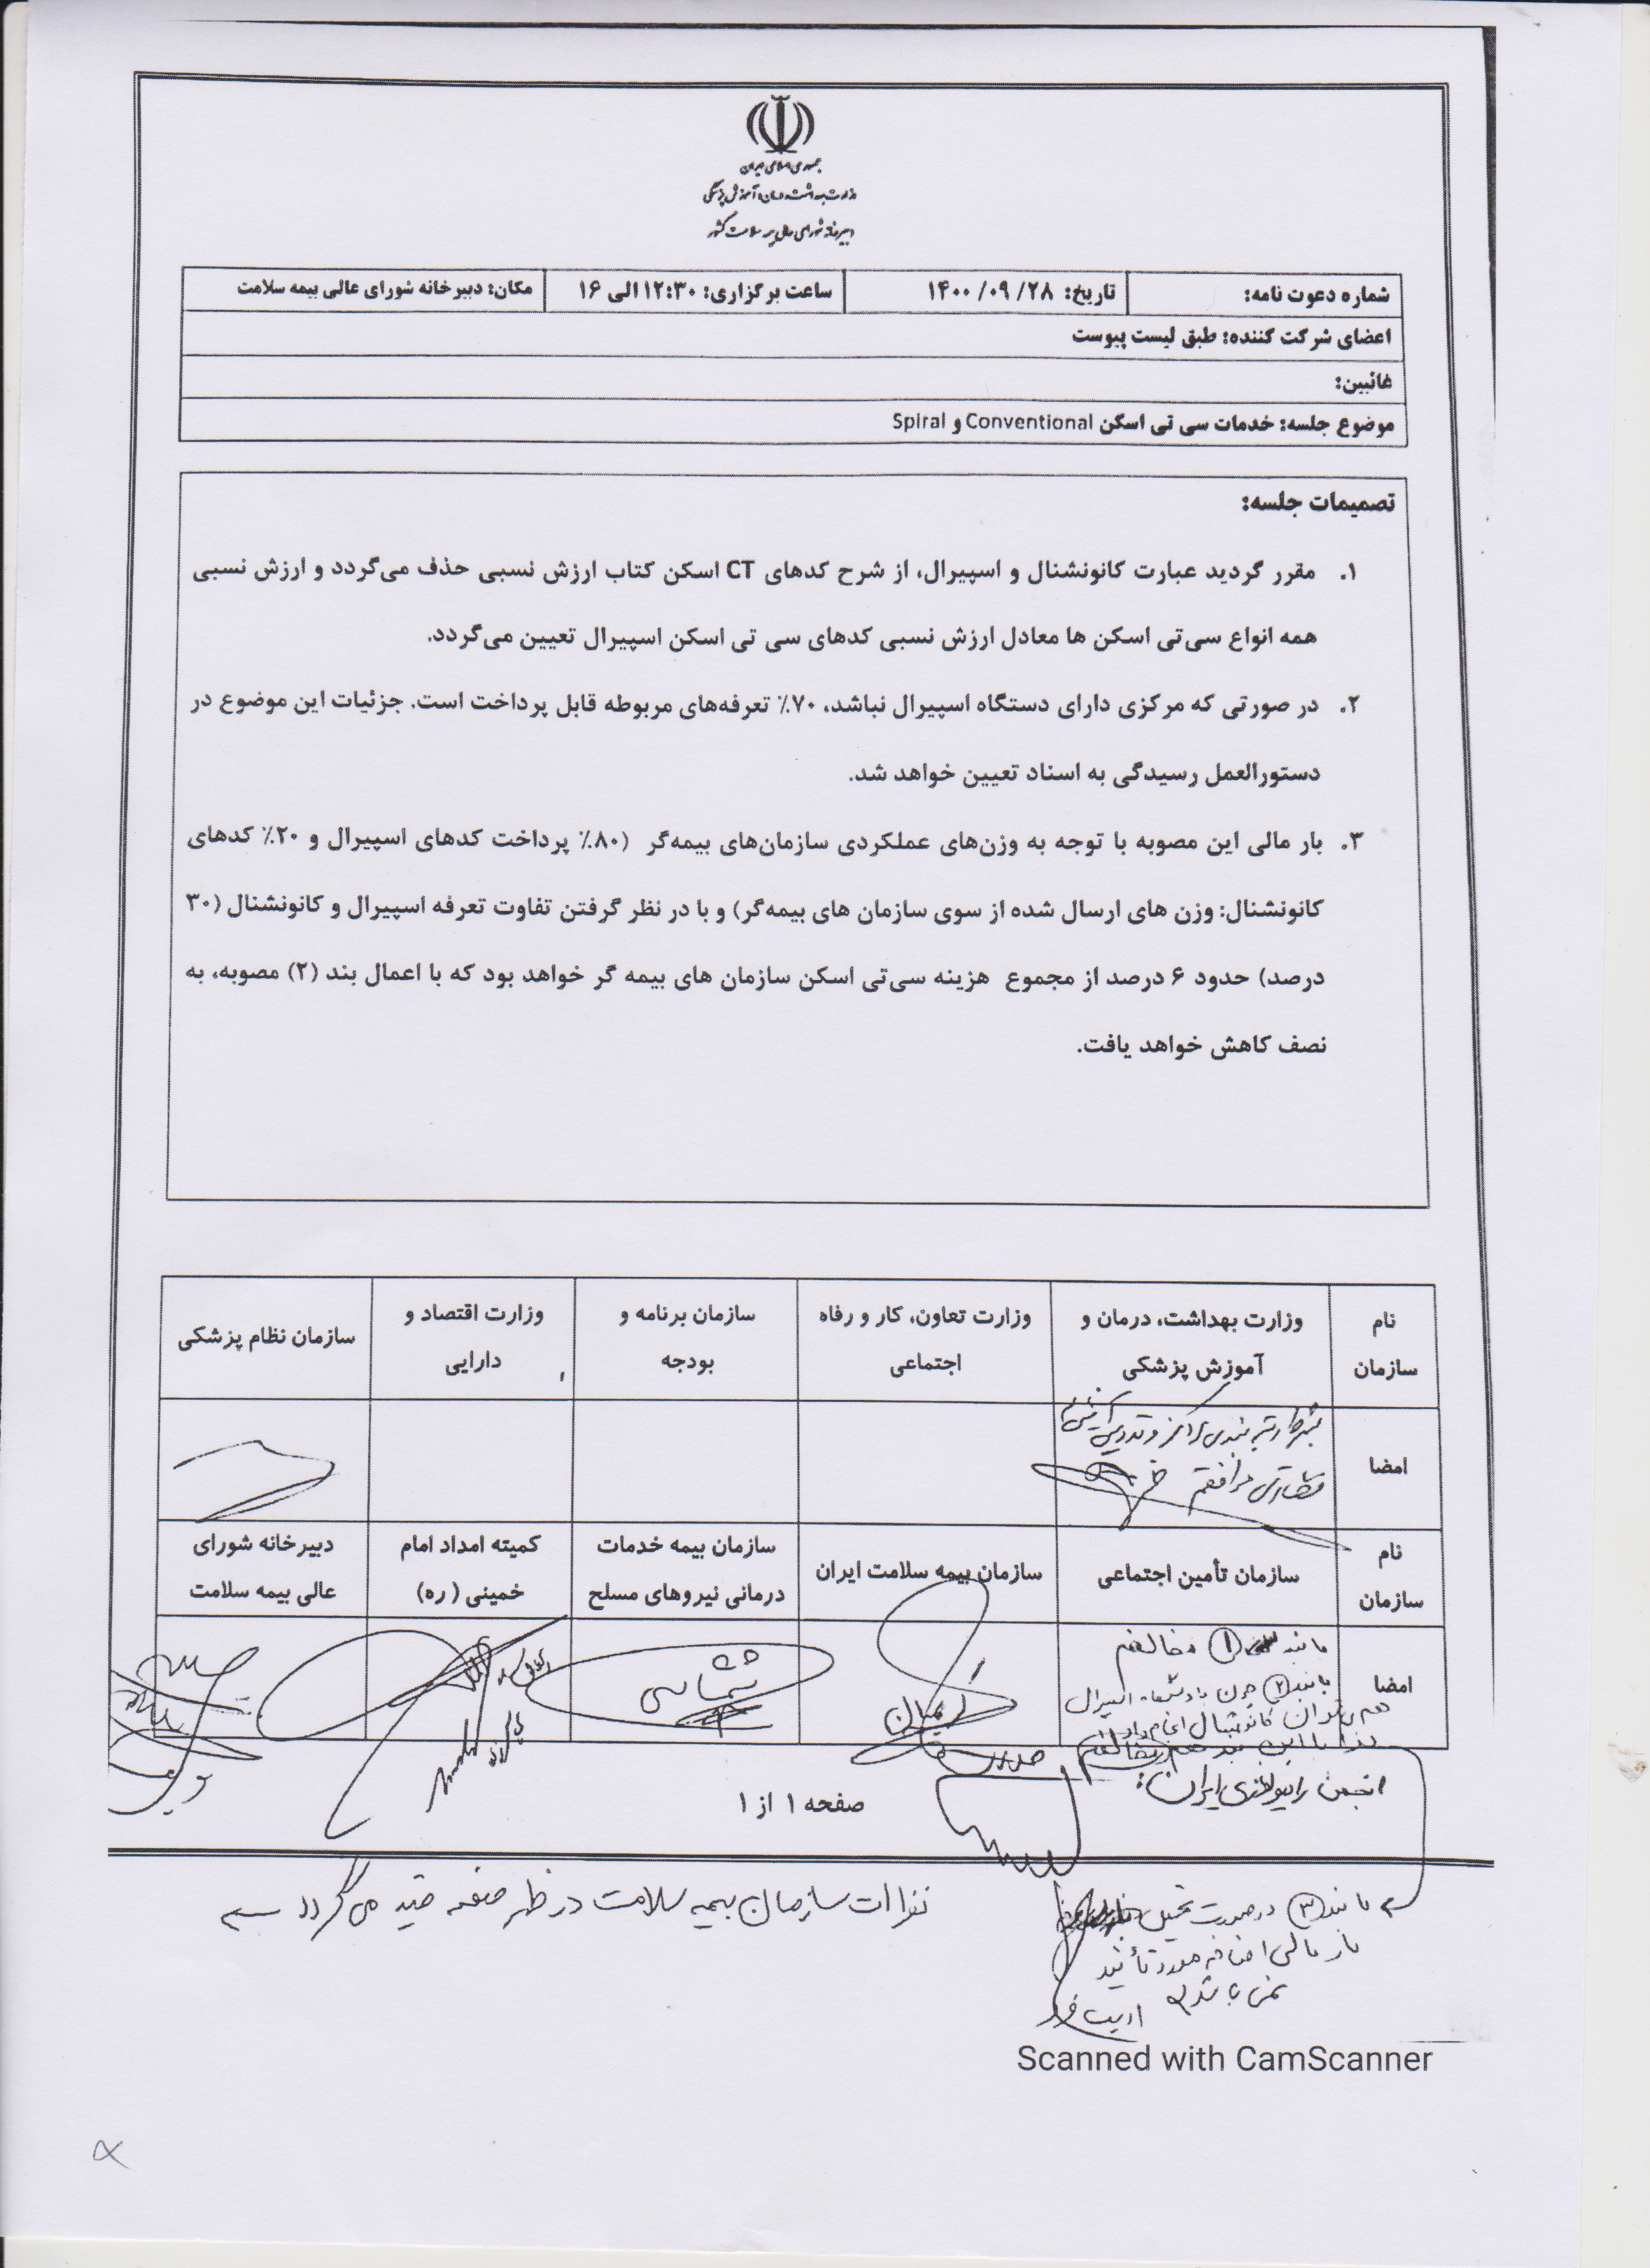 جمهوری اسلامی ایران
وزارت بهداشت، درمان و آموزش پزشکی
دبیرخانه شورای عالی بیمه سلامت کشور
شماره دعوت نامه: تاریخ: ۱۴۰۰/۰۹/۲۸ ساعت برگزاری: ۱۲:۳۰ الی ۱۶ مکان: دبیرخانه شورای عالی بیمه سلامت
اعضای شرکت کننده: طبق لیست پیوست
غائبین:
موضوع جلسه: خدمات سی تی اسکن Conventional و Spiral
تصمیمات جلسه:
۱. مقرر گردید عبارت کانونشنال و اسپیرال، از شرح کدهای CT اسکن کتاب ارزش نسبی حذف می‌گردد و ارزش نسبی
همه انواع سی‌تی اسکن ها معادل ارزش نسبی کدهای سی تی اسکن اسپیرال تعیین می‌گردد.
۲. در صورتی که مرکزی دارای دستگاه اسپیرال نباشد، ۷۰٪ تعرفه‌های مربوطه قابل پرداخت است. جزئیات این موضوع در
دستورالعمل رسیدگی به اسناد تعیین خواهد شد.
۳. بار مالی این مصوبه با توجه به وزن‌های عملکردی سازمان‌های بیمه‌گر (۸۰٪ پرداخت کدهای اسپیرال و ۲۰٪ کدهای
کانونشنال: وزن های ارسال شده از سوی سازمان های بیمه‌گر) و با در نظر گرفتن تفاوت تعرفه اسپیرال و کانونشنال (۳۰
درصد) حدود ۶ درصد از مجموع هزینه سی‌تی اسکن سازمان های بیمه گر خواهد بود که با اعمال بند (۲) مصوبه، به
نصف کاهش خواهد یافت.
نام سازمان
وزارت بهداشت، درمان و آموزش پزشکی
وزارت تعاون، کار و رفاه اجتماعی
سازمان برنامه و بودجه
وزارت اقتصاد و دارایی
سازمان نظام پزشکی
امضا
موافقم
نام سازمان
سازمان تأمین اجتماعی
سازمان بیمه سلامت ایران
سازمان بیمه خدمات درمانی نیروهای مسلح
کمیته امداد امام خمینی (ره)
دبیرخانه شورای عالی بیمه سلامت
امضا
با بند ۱ مخالفم
با بند ۲ چون با دستگاه اسپیرال
هم می‌توان کانونشنال انجام داد
لذا با این بند هم مخالفم
انجمن رادیولوژی ایران:
صفحه ۱ از ۱
با بند ۳ در صورت تحمیل
بار مالی اضافه مورد تأیید
نمی باشد
نظرات سازمان بیمه سلامت در ظهر صفحه قید می گردد
Scanned with CamScanner